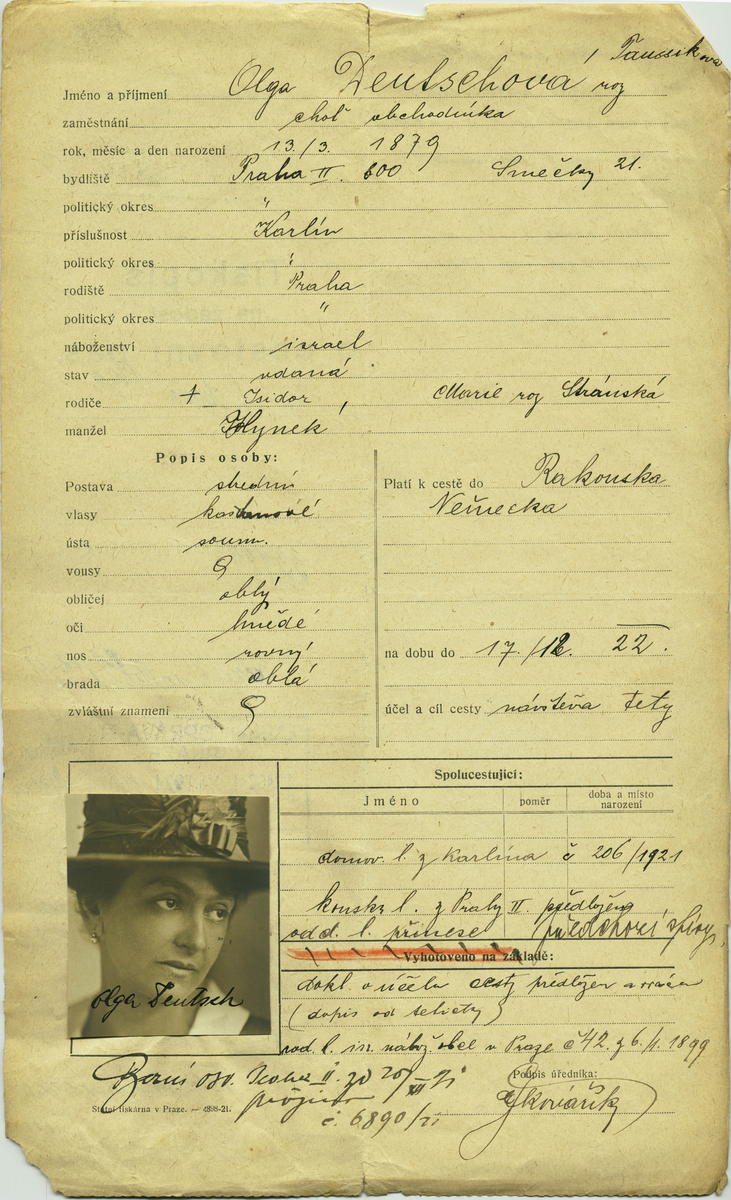 Taussikova
Jméno a příjmení Olga Deutschová roz
zaměstnání choť obchodníka
rok, měsíc a den narození 13./3. 1879
bydliště Praha II. 600 Smečky 21.
politický okres "
příslušnost Karlín
politický okres "
rodiště Praha
politický okres "
náboženství israel
stav vdaná
rodiče + Isidor, Marie roz Stránská
manžel Hynek
Popis osoby:
Postava střední
vlasy kaštanové
ústa soum.
vousy
obličej oblý
oči hnědé
nos rovný
brada oblá
zvláštní znamení
Platí k cestě do Rakouska
Německa
na dobu do 17./12. 22.
účel a cíl cesty návštěva tety
Spolucestující:
Jméno poměr doba a místo narození
domov. l. z Karlína č 206/1921
l. z Prahy II. předložena
odd. l. přinese předchozí
Vyhotoveno na základě:
dokl. o účelu cesty předložen a vrácen
(dopis od tety)
rod. l. isr. nábož. obce v Praze č 42. z 6./1. 1899
Olga Deutsch
Praha II.
č. 6890/21
Podpis úředníka:
Kovářík
Státní tiskárna v Praze. — 4898-21.